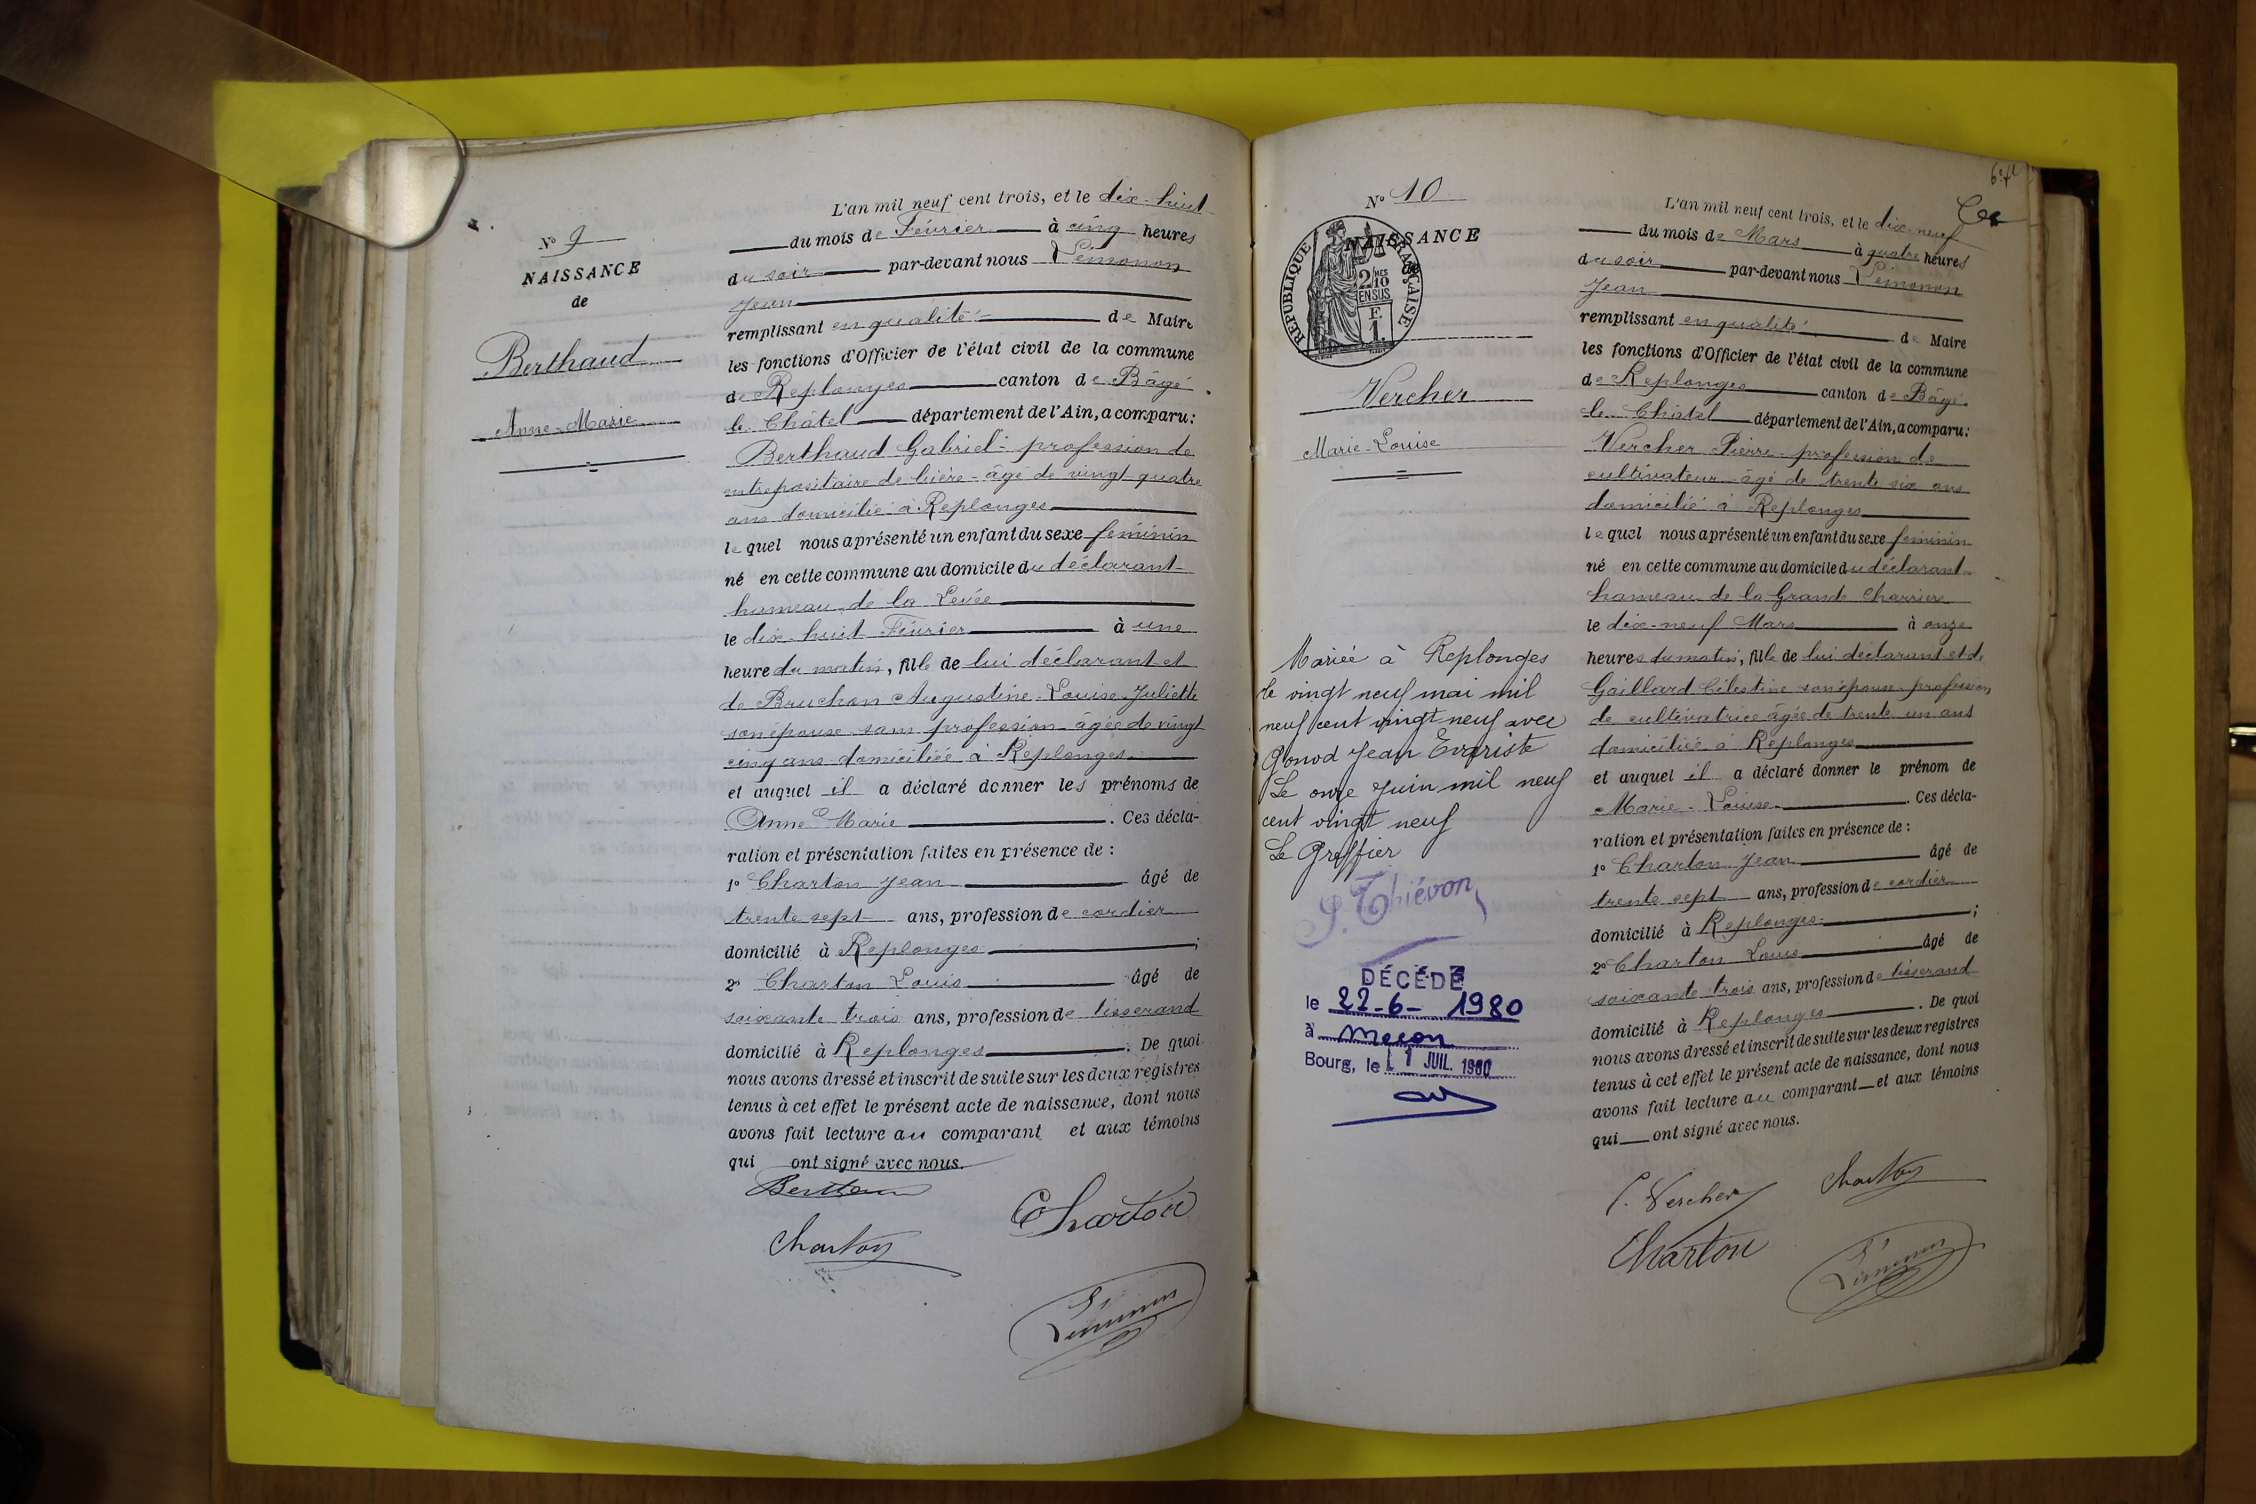 N° 9
NAISSANCE
de
Berthaud
Anne-Marie
L'an mil neuf cent trois, et le dix-huit
du mois de Février à cinq heures
du soir par-devant nous Limonon
Jean
remplissant en qualité de Maire
les fonctions d'Officier de l'état civil de la commune
de Replonges canton de Bâgé
le Châtel département de l'Ain, a comparu:
Berthaud Gabriel - profession de
entrepositaire de bière - âgé de vingt quatre
ans domicilié à Replonges
lequel nous a présenté un enfant du sexe féminin
né en cette commune au domicile du déclarant
hameau de la Levée
le dix-huit Février à une
heure du matin, fille de lui déclarant et
de Bruchon Augustine-Louise-Juliette
son épouse sans profession - âgée de vingt
cinq ans domiciliée à Replonges
et auquel il a déclaré donner les prénoms de
Anne Marie. Ces décla-
ration et présentation faites en présence de :
1° Charton Jean âgé de
trente sept ans, profession de cordier
domicilié à Replonges ;
2° Charton Louis âgé de
soixante trois ans, profession de tisserand
domicilié à Replonges. De quoi
nous avons dressé et inscrit de suite sur les deux registres
tenus à cet effet le présent acte de naissance, dont nous
avons fait lecture au comparant et aux témoins
qui ont signé avec nous.
Charton
Charton
N° 10
NAISSANCE
RÉPUBLIQUE FRANÇAISE
2/10
EN SUS
F.
1
Vercher
Marie-Louise
Mariée à Replonges
le vingt neuf mai mil
neuf cent vingt neuf avec
Gonod Jean Evariste
Le onze juin mil neuf
cent vingt neuf
Le Greffier
Thiévon
DÉCÉDÉ
le 22-6-1980
à Macon
Bourg, le 1 JUIL. 1980
L'an mil neuf cent trois, et le dix-neuf
du mois de Mars à quatre heures
du soir par-devant nous Limonon
Jean
remplissant en qualité de Maire
les fonctions d'Officier de l'état civil de la commune
de Replonges canton de Bâgé
le Châtel département de l'Ain, a comparu:
Vercher Pierre - profession de
cultivateur - âgé de trente six ans
domicilié à Replonges
lequel nous a présenté un enfant du sexe féminin
né en cette commune au domicile du déclarant
hameau de la Grande Charriere
le dix-neuf Mars à onze
heures du matin, fille de lui déclarant et de
Gaillard Célestine son épouse - profession
de cultivatrice âgée de trente un ans
domiciliée à Replonges
et auquel il a déclaré donner le prénom de
Marie-Louise. Ces décla-
ration et présentation faites en présence de :
1° Charton Jean âgé de
trente sept ans, profession de cordier
domicilié à Replonges ;
2° Charton Louis âgé de
soixante trois ans, profession de tisserand
domicilié à Replonges. De quoi
nous avons dressé et inscrit de suite sur les deux registres
tenus à cet effet le présent acte de naissance, dont nous
avons fait lecture au comparant et aux témoins
qui ont signé avec nous.
Vercher Charton
Charton